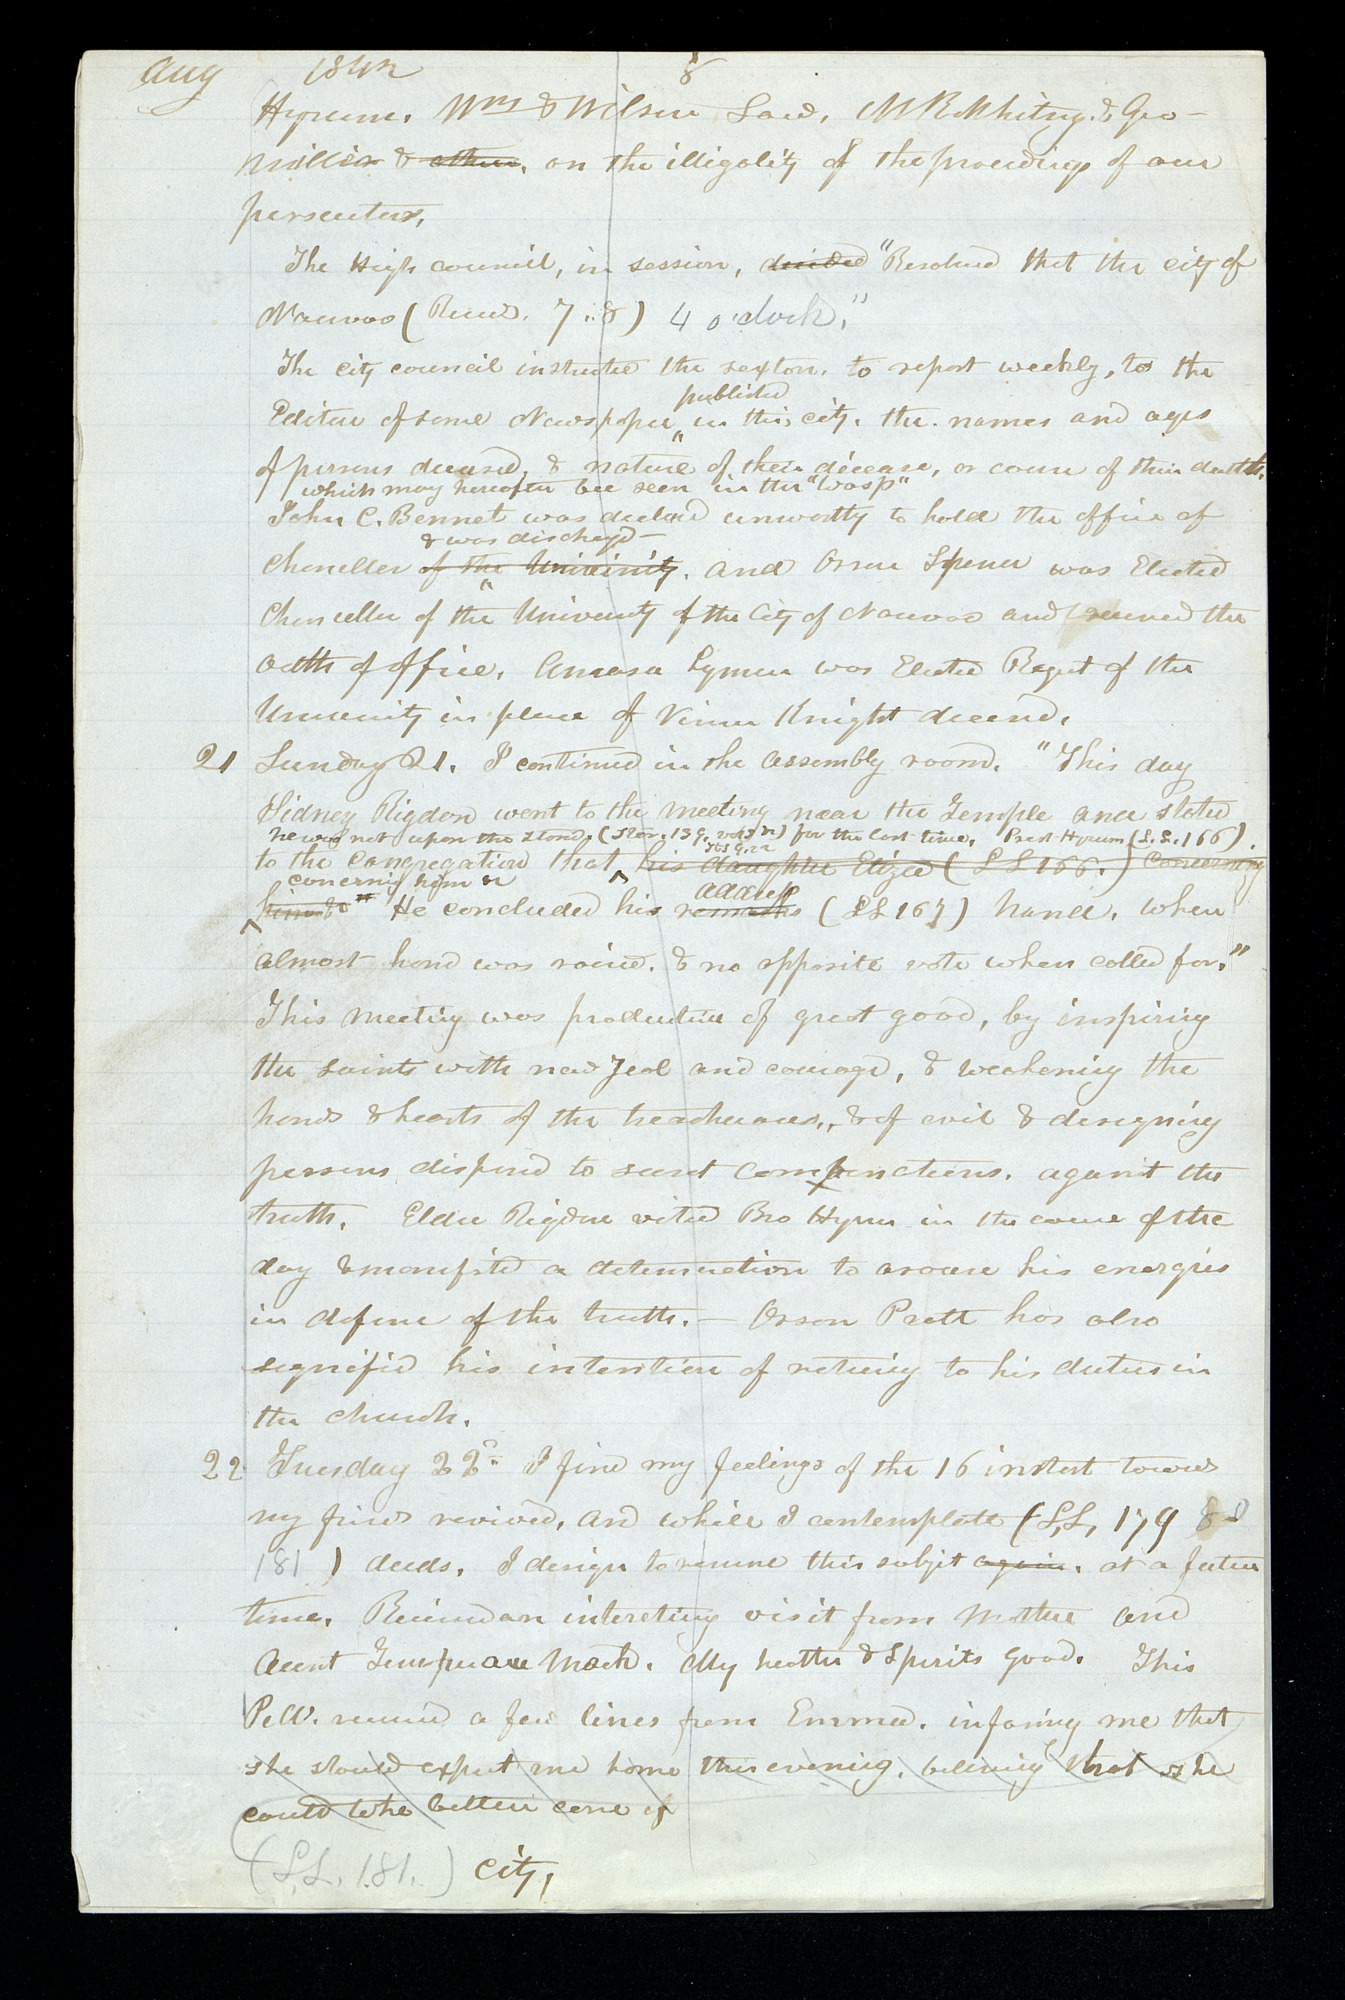 Aug 1842 8
Hyrum. Wm & Wilson Law, N K Whitny. & Geo-
Miller & others, on the illigality of the proceedings of our
persecutors,
The High council, in session, decided "Resolved that the city of
Nauvoo ( 7.. 8) 4 o'clock."
The city council instructed the sexton. to report weekly, to the
published
Editor of some Newspaper in this city. the names and ages
of persons deceased, & nature of their decease, or cause of their death.
which may hereafter be seen in the "Wasp"
John C. Bennet was declared unworthy to hold the office of
& was dischargd—
Chancellor of the University. and Orson Spencer was Elected
Chancellor of the University of the City of Nauvoo and received the
oath of office. Amasa Lyman was Elected Regent of the
University in place of Vinson Knight deceased,
21 Sunday 21. I continued in the assembly room. "This day
Sidney Rigdon went to the meeting near the Temple and stated
he was not upon the stand, for the last time, Prest Hyrum (L.L. 166).
to the congregation that his daughter Eliza (LL 166.) concerning
concernig him
address
He concluded his remarks (LL 167) hand. when
almost hand was raised. & no opposite vote when called for."
This meeting was productive of great good, by inspiring
the saints with new zeal and courage, & weakening the
hands & hearts of the treacherous,, & of evil & designing
persons disposed to secret against the
truth. Elder Rigdon visited Bro Hyrum in the course of the
day & manifsted a determination to arouse his energies
in defence of the truth.— Orson Pratt has also
signified his intention of returing to his duties in
the church.
22 Tuesday 22d. I find my feelings of the 16 instant towards
my friends revived, and while I contemplate (L,L, 179 &
181 ) deeds. I design to resume this subjet again. at a future
time. Recieved an interesting visit from Mother and
Aunt Temperance Mack. My health & Spirits good. This
P.M. received a few lines from Emma. informing me that
she would expect me home this evening, believing that she
could take better care of
(L,L. 181.) city,